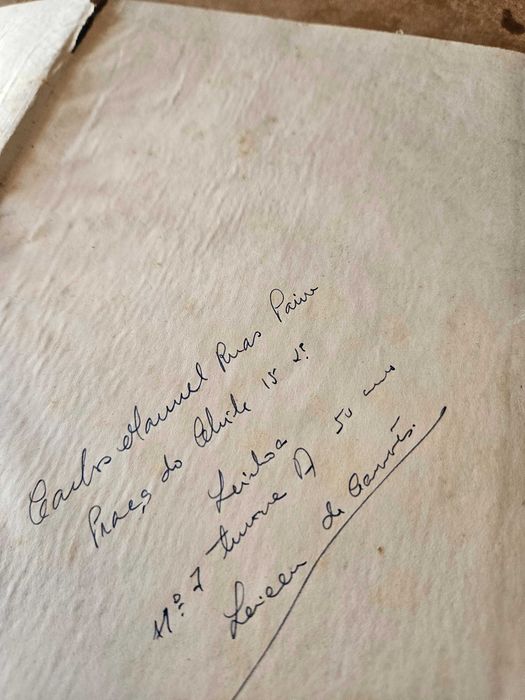 Carlos Manuel Ruas Paiva
Praça do Chile 15 2º
Lisboa
Nº 7 turma A 5º ano
Liceu de Camões